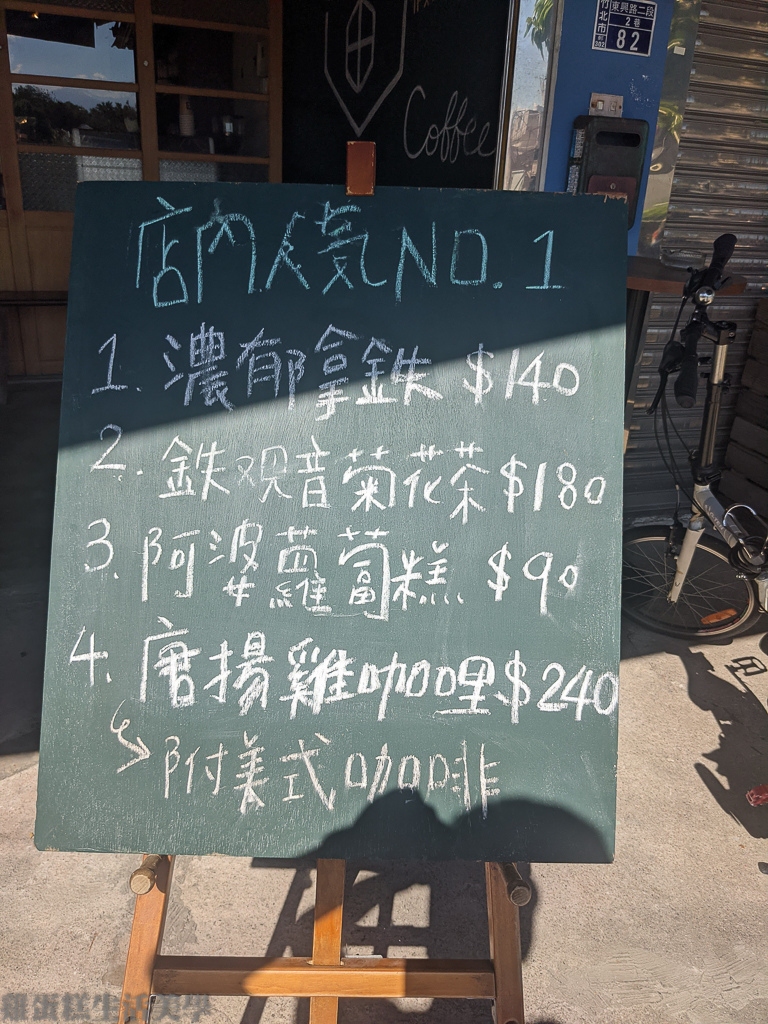 東興路二段
竹北市
2巷
82
Coffee
店內人氣NO.1
1.濃郁拿鉄 $140
2.鉄观音菊花茶$180
3.阿婆蘿蔔糕 $90
4.唐揚雞咖哩$240
附美式咖啡
雞蛋糕生活美學